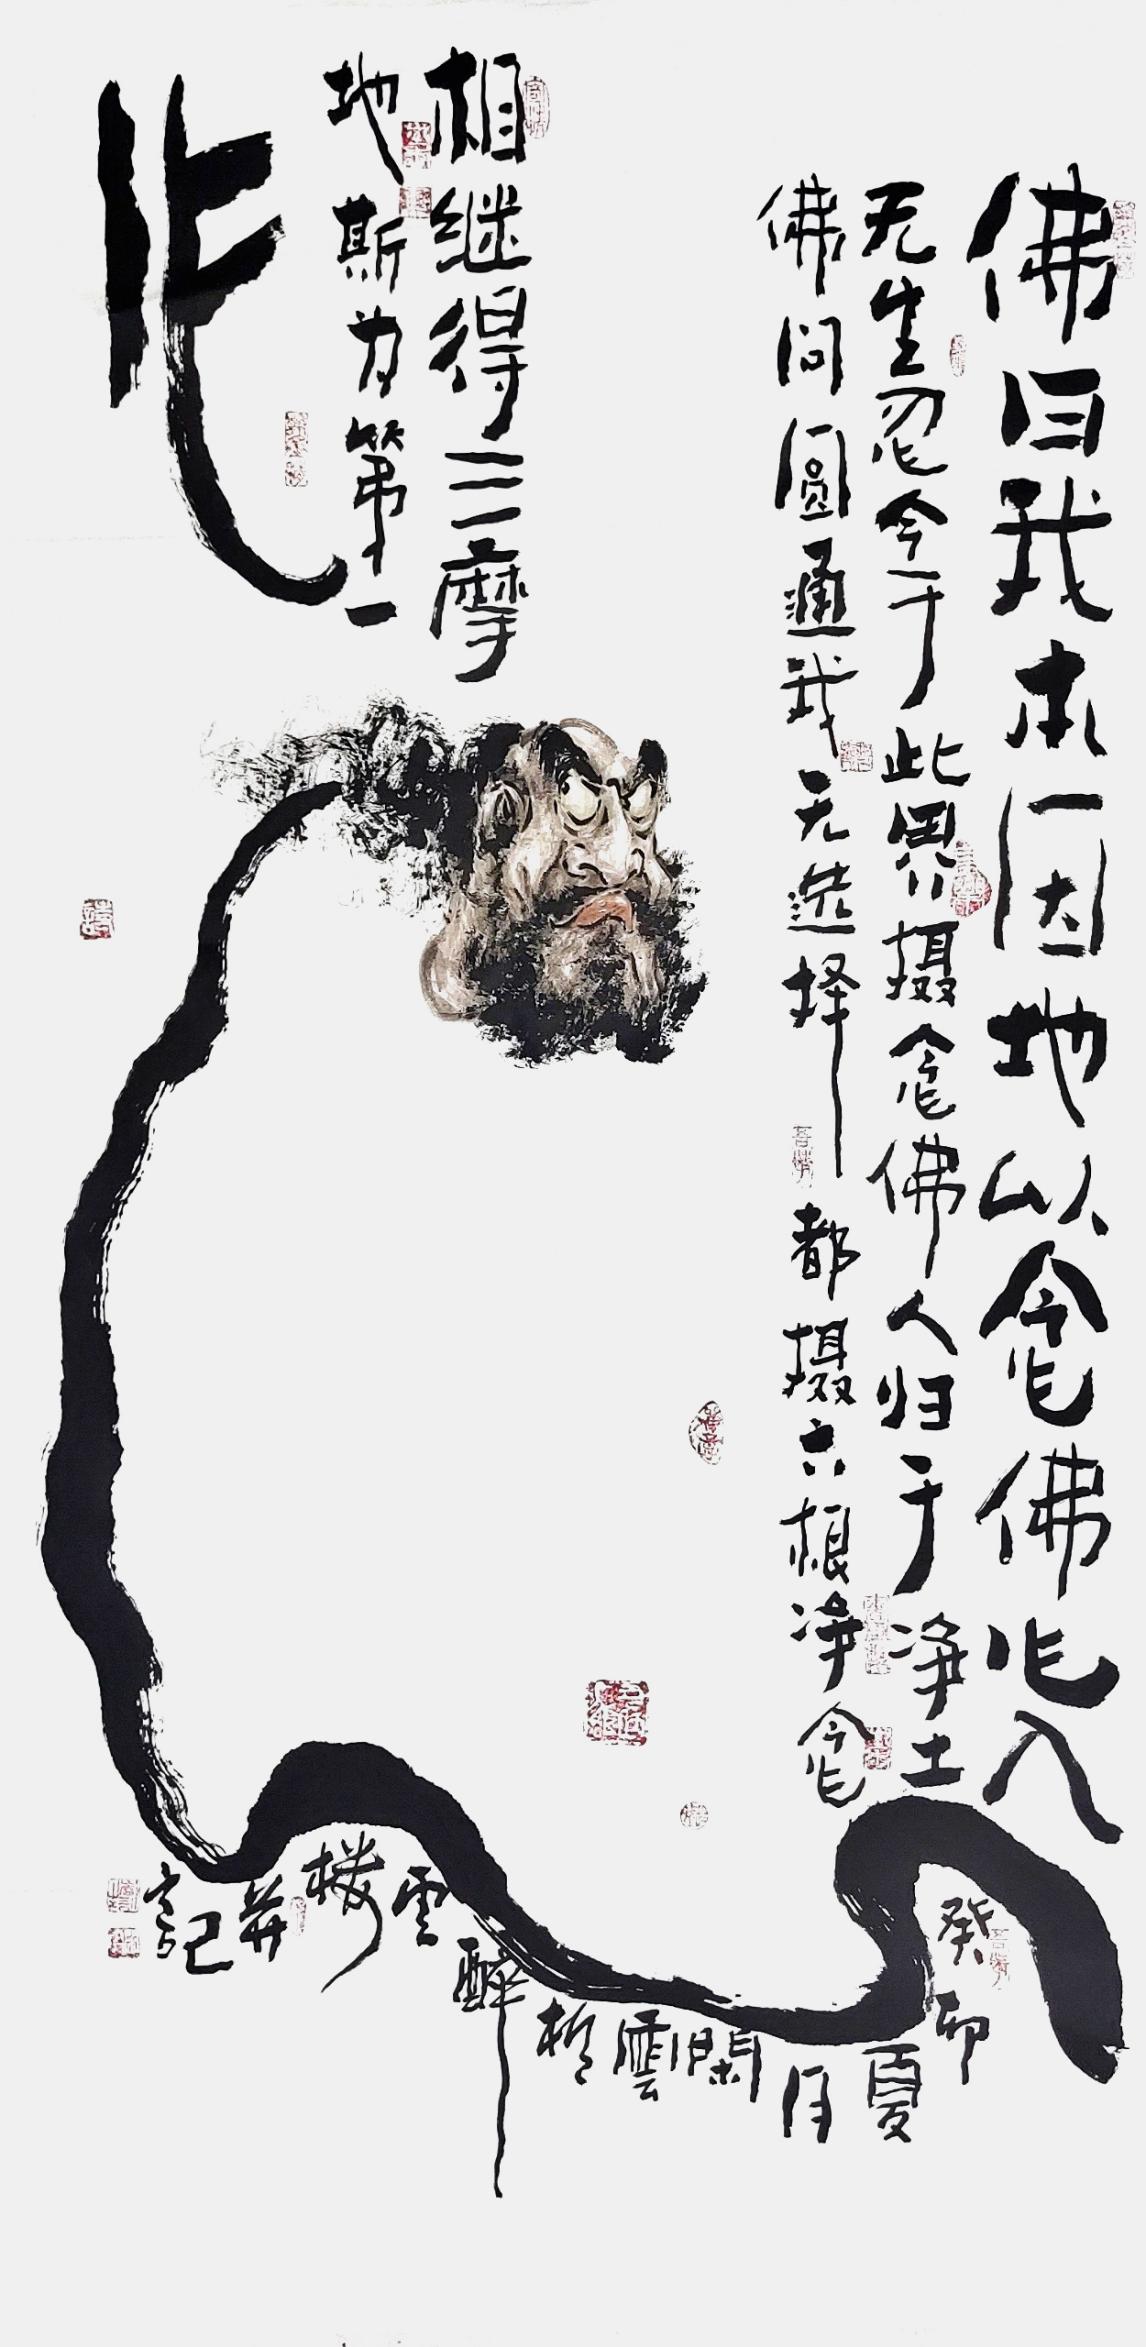 佛曰我本因地以念佛心入
无生忍今于此界摄念佛人归于净土
佛问圆通我无选择都摄六根净念
相继得三摩
地斯为第一
心
癸卯夏月閑雲於醉雲楼并記